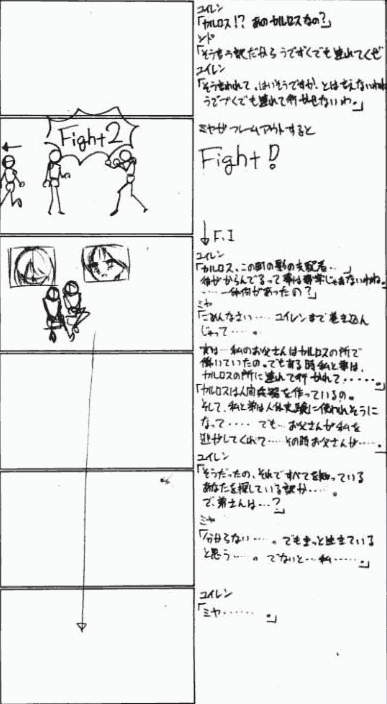 ユイレン
「カルロス!? あのカルロスなの?」
ンド
「そう言う訳だから うでずくでも 連れてくぜ
ユイレン
「そう言われて、はいそうですか、とは言えないわね
うでづくでも連れて行かせないわ。」
Fight 2
ミヤがフレームアウトすると
Fight!
F.I
ユイレン
「カルロス、この町の影の支配者…
彼がからんでるって事は尋常じゃあないわね。
……一体何があったの?」
ミヤ
「ごめんなさい…… ユイレンまで巻き込ん
じゃって……。
実は…私のお父さんはカルロスの所で
働いていたの。でもある時私と弟は、
カルロスの所に連れて行かれて……
「カルロスは人間兵器を作っているの。
そして、私と弟は人体実験に使われそうに
なって…… でも…お父さんが私を
逃がしてくれて……その時お父さんが……。
ユイレン
「そうだったの、それですべてを知っている
あなたを探している訳か……。
で、弟さんは…?」
ミヤ
「分からない……。でもきっと生きている
と思う……。でないと…私……。」
ユイレン
「ミヤ……。」